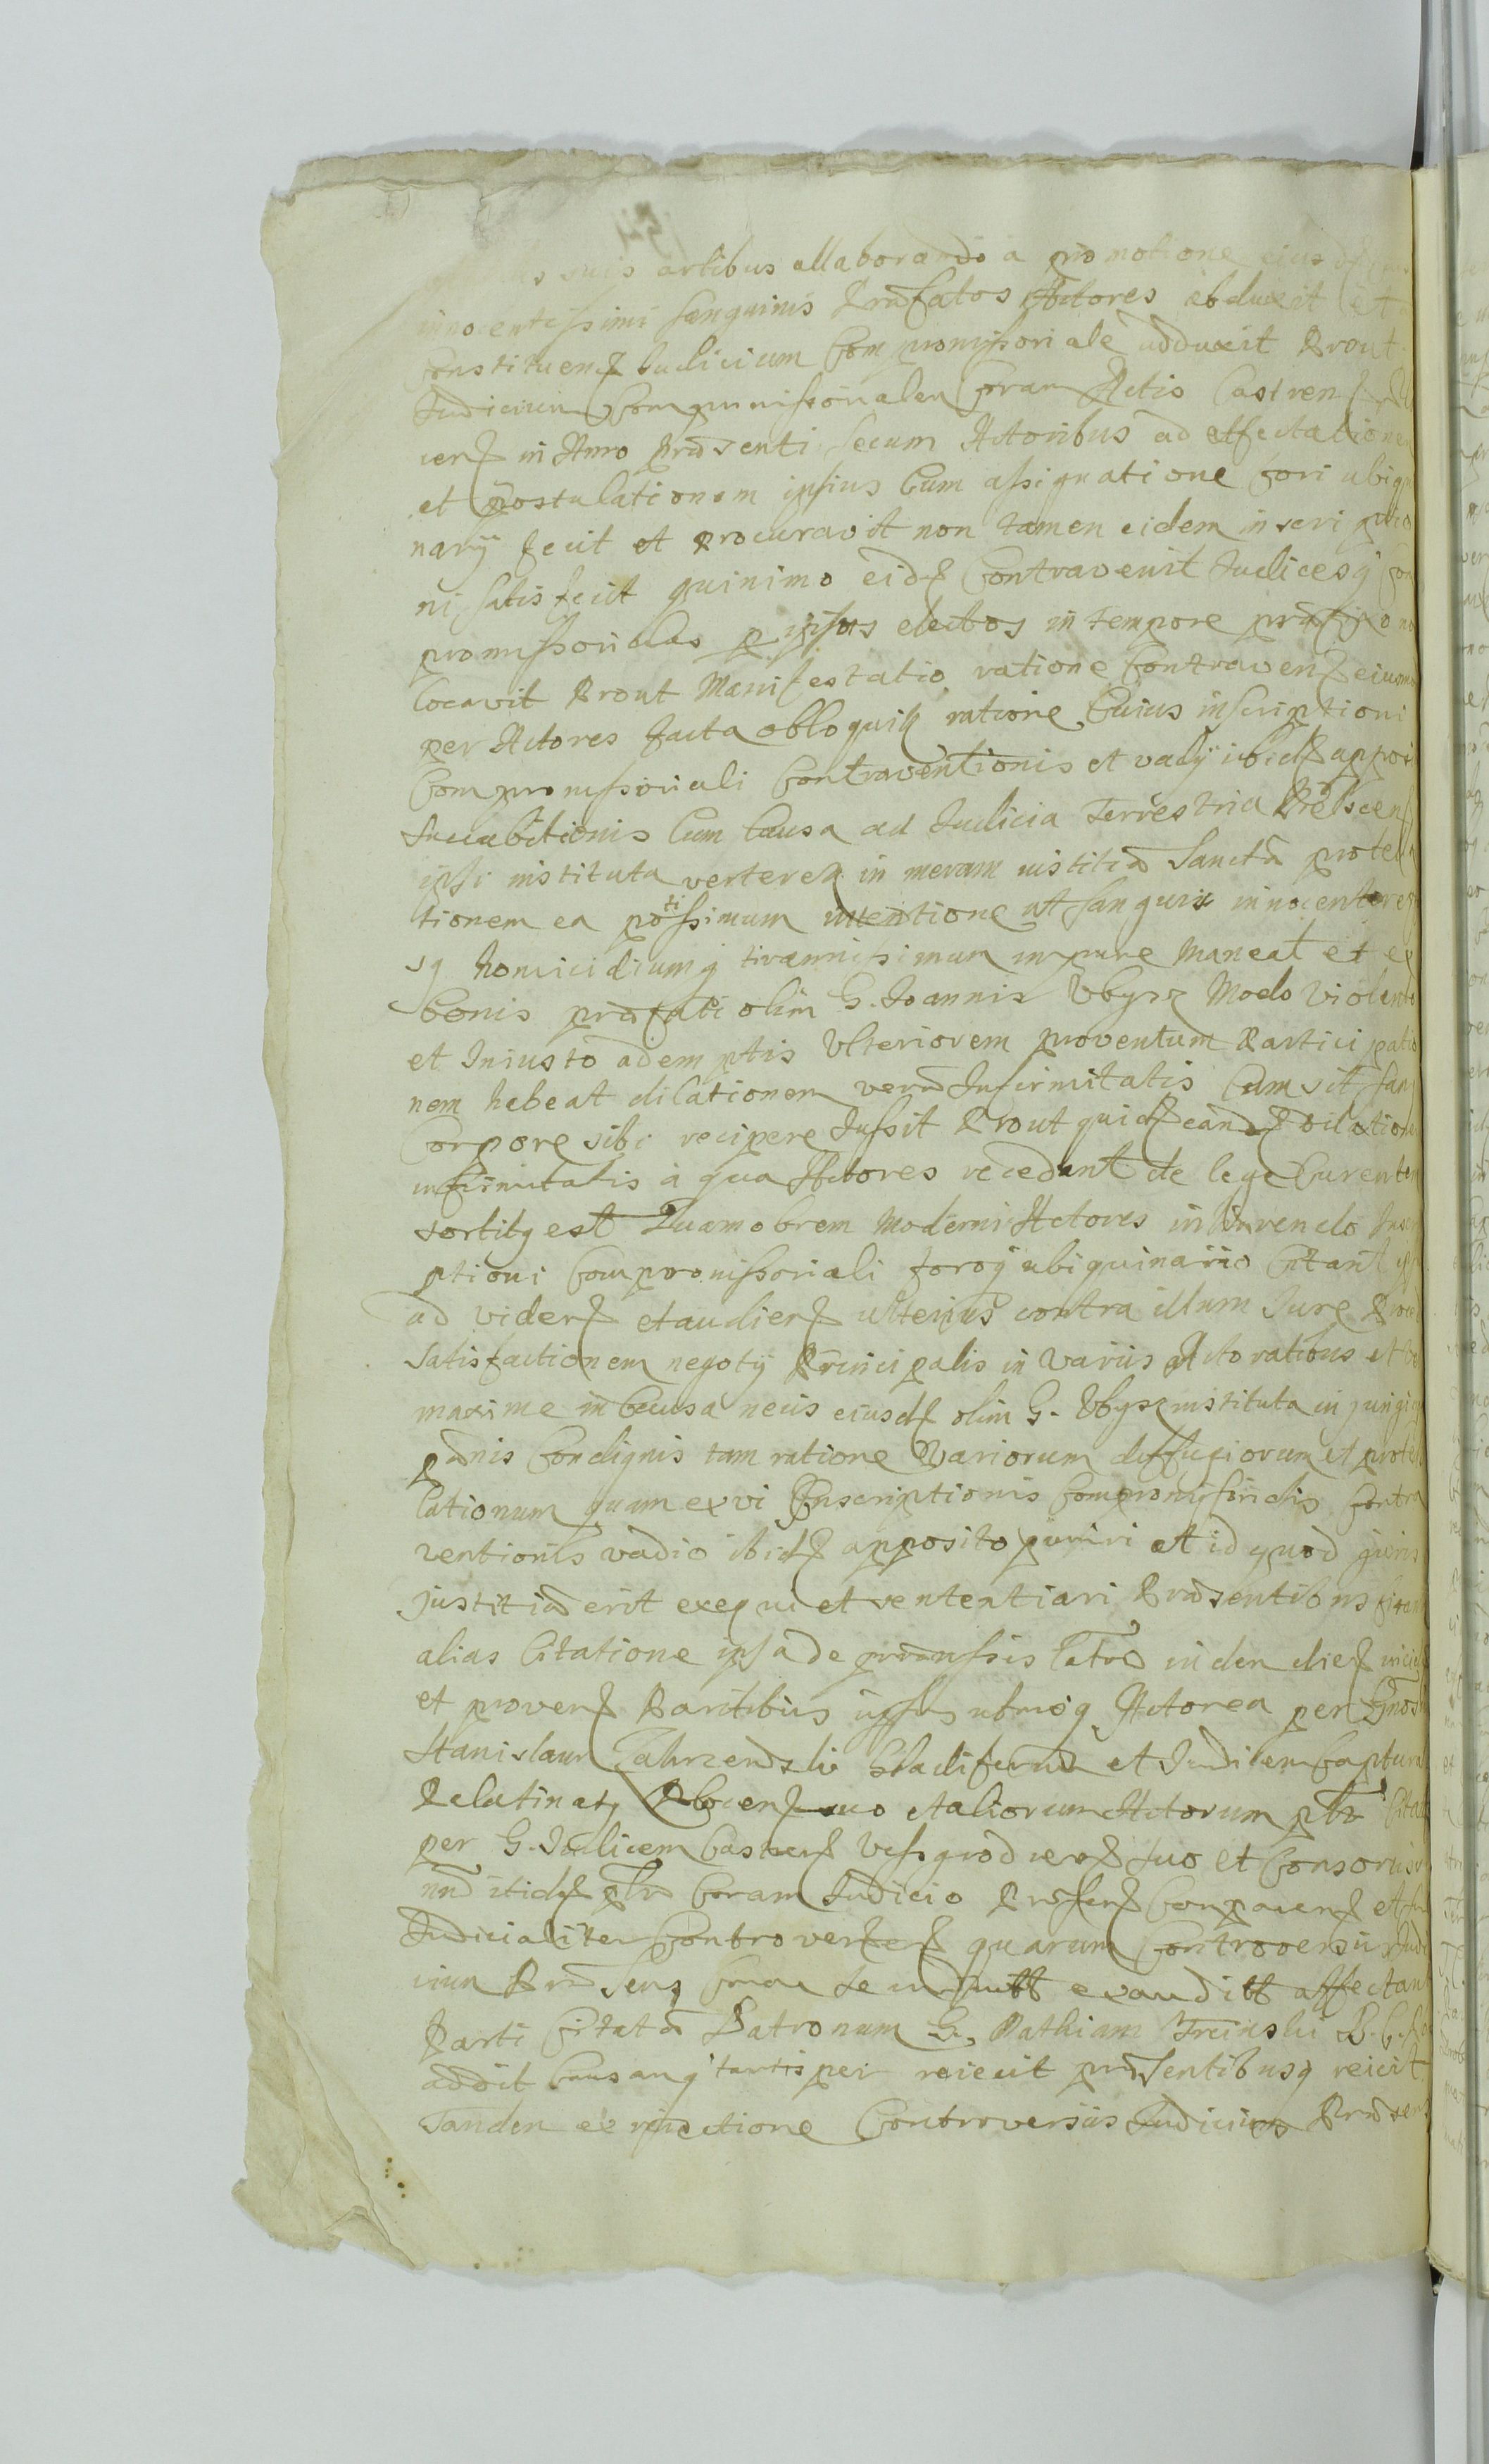 suis artibus allaborando a promotione eius
innocentissimi sanguinis Præfatos Actores abduxit et
Constituen Iudicium Compromissoriale adduxit Prout
Iudicium Compromissorialem Coram Actis Castren
cen in Anno Præsenti secum Actoribus ad affectatione
et postulationem ipsius Cum assignatione fori ubiqui
narÿ fecit et Procuravit non tamen eidem inscriptio
ni satisfecit quinimo eid Contravenit Iudicesq Com
promissoriales p ipsus electos in tempore præfixo no
locavit Prout Manifestatio ratione Contraven eiusmo
per Actores facta obloquit ratione Cuius inscriptioni
Compromissoriali Contraventionis et vadÿ ibid apposi
succubitionis Cum Causa ad Iudicia Terrestria
ipsi instituta verteret in meram iustitiæ Sanctæ protela
tionem ea potissimum intentione ut sanguis innocenter
sq homicidiumq tirannissimum impune Maneat et ex
bonis præfati olim G. Ioannis Ubysz Modo Violento
et Iniusto ademptis Ulteriorem proventum Participatio
nem habeat dilationem veræ Infirmitatis Cum sit san
Corpore sibi recipere Iussit Prout quid eand dilation
infirmitatis à qua Actores recedunt de lege Curenten
sortitq est Quamobrem Moderni Actores in
ptioni Compromissoriali foroq ubiquinario Citant ips
ad viden et audien ulterius contra illum Iure Proce
satisfactionem negotÿ Principalis in Variis Actoratibus et
maxime in Causa necis eiusd olim G. Ubysz instituta in jungi
pænis Condignis tam ratione Variorum diffugiorum et prote
lationum quam ex vi Inscriptionis Compromissorialis Contra
ventionis vadio ibid apposito puniri et id quod juris
justitiæ erit exequi et sententiari Præsentibus
alias Citatione ipsa de præmissis in den die
et proven Partibus ipsis utrinq Actorea per Gnos
Stanislaum Gladiferum et Iudicem Capturæ
Palatinatq suo et aliorum Actorum
per G. Iudicem Castren suo et Consortis
itid Coram Iudicio Præsen Comparen et
Iudicialiter Controverten quarum Controversiis Iudi
cium Præsens exaudit affectan
Parti Citatæ Patronum G. Mathiam
addit Causamq tantisper reiecit præsentibusq reicit
Tandem ex reiectione Controversiis Iudicium Præsens